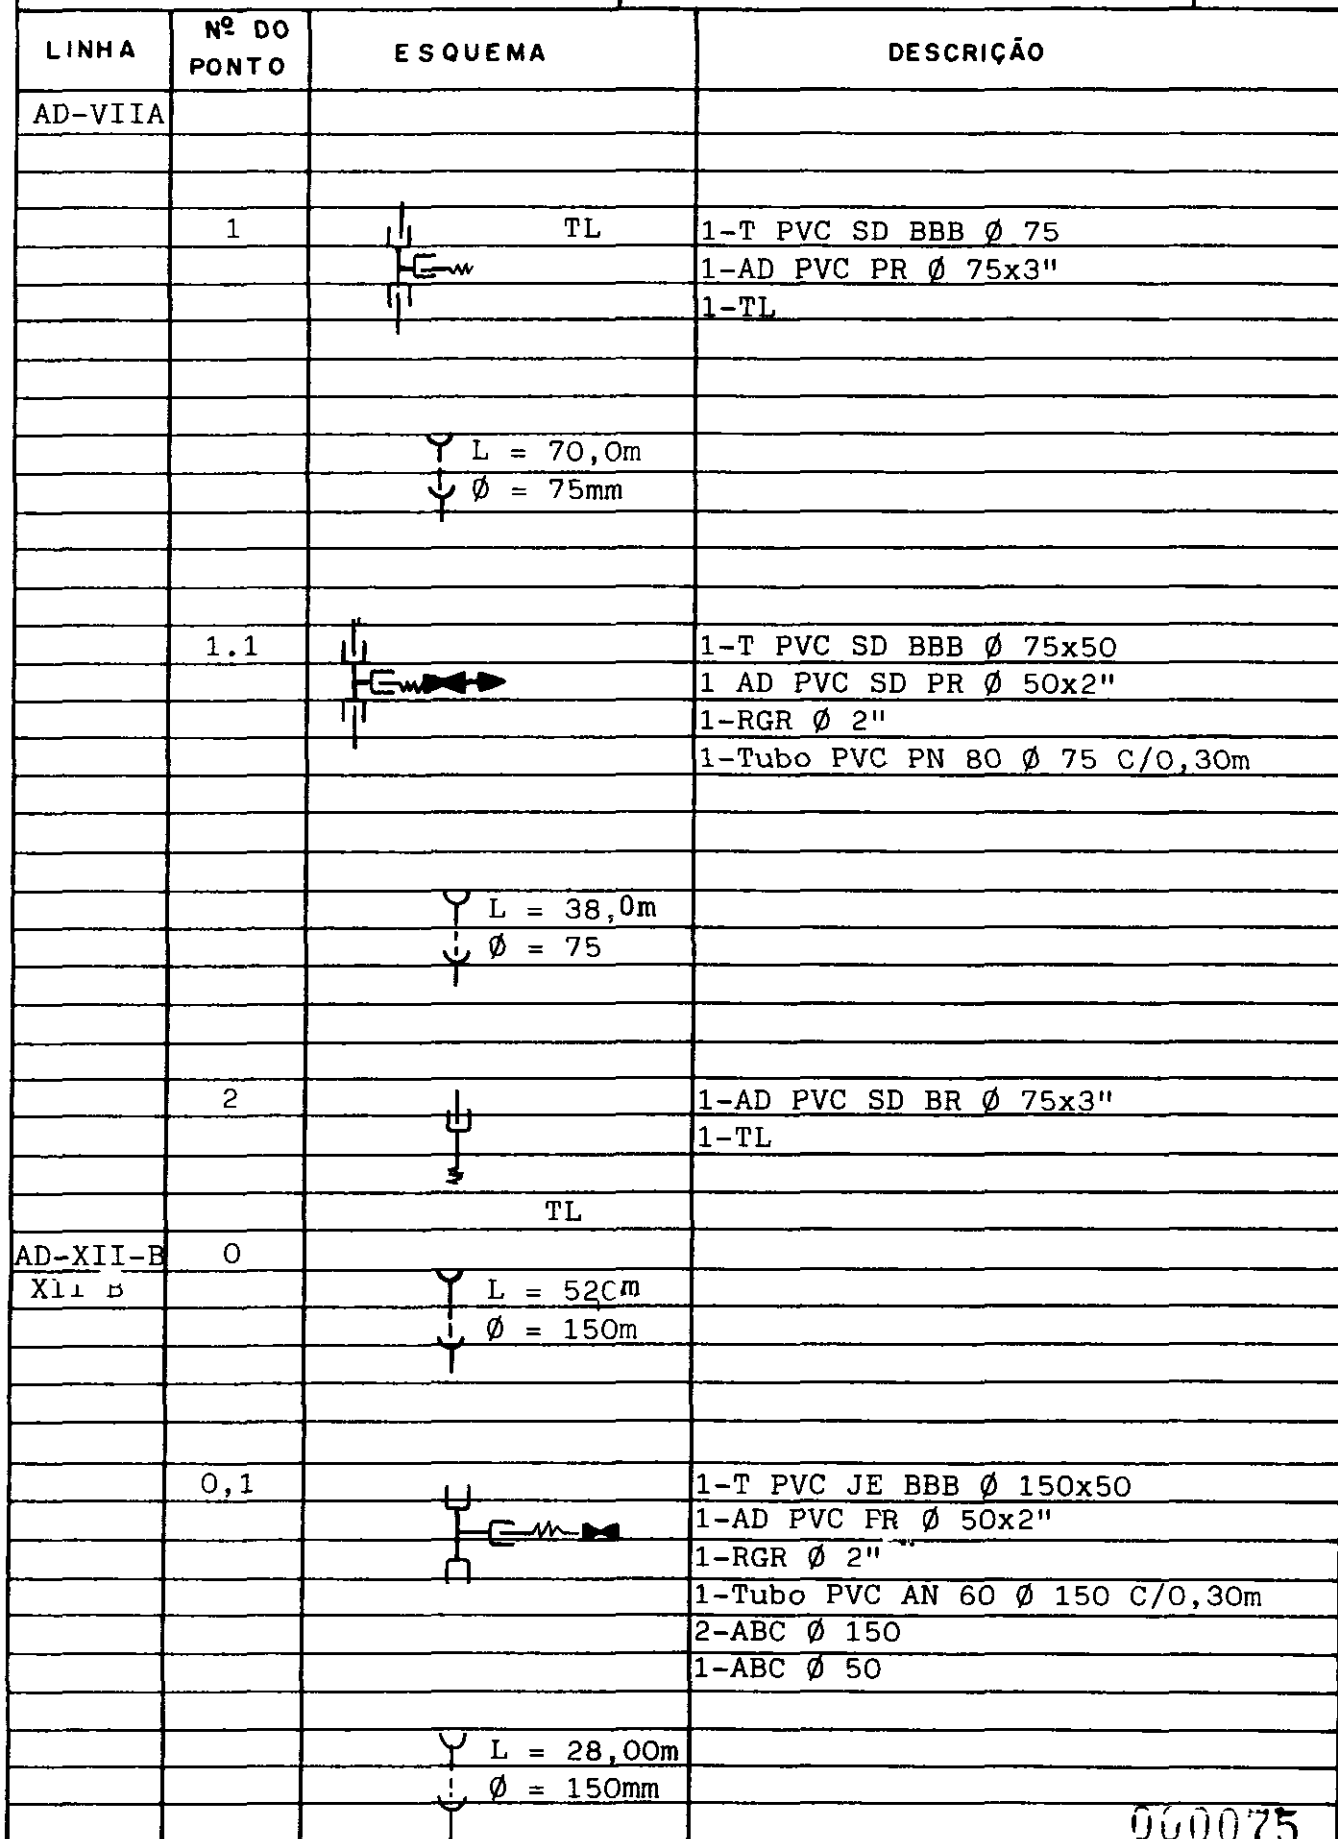 LINHA Nº DO PONTO ESQUEMA DESCRIÇÃO
AD-VIIA
1 TL 1-T PVC SD BBB Ø 75
1-AD PVC PR Ø 75x3"
1-TL
L = 70,0m
Ø = 75mm
1.1 1-T PVC SD BBB Ø 75x50
1 AD PVC SD PR Ø 50x2"
1-RGR Ø 2"
1-Tubo PVC PN 80 Ø 75 C/0,30m
L = 38,0m
Ø = 75
2 1-AD PVC SD BR Ø 75x3"
1-TL
TL
AD-XII-B 0
XII B L = 520m
Ø = 150m
0,1 1-T PVC JE BBB Ø 150x50
1-AD PVC PR Ø 50x2"
1-RGR Ø 2"
1-Tubo PVC AN 60 Ø 150 C/0,30m
2-ABC Ø 150
1-ABC Ø 50
L = 28,00m
Ø = 150mm
000075